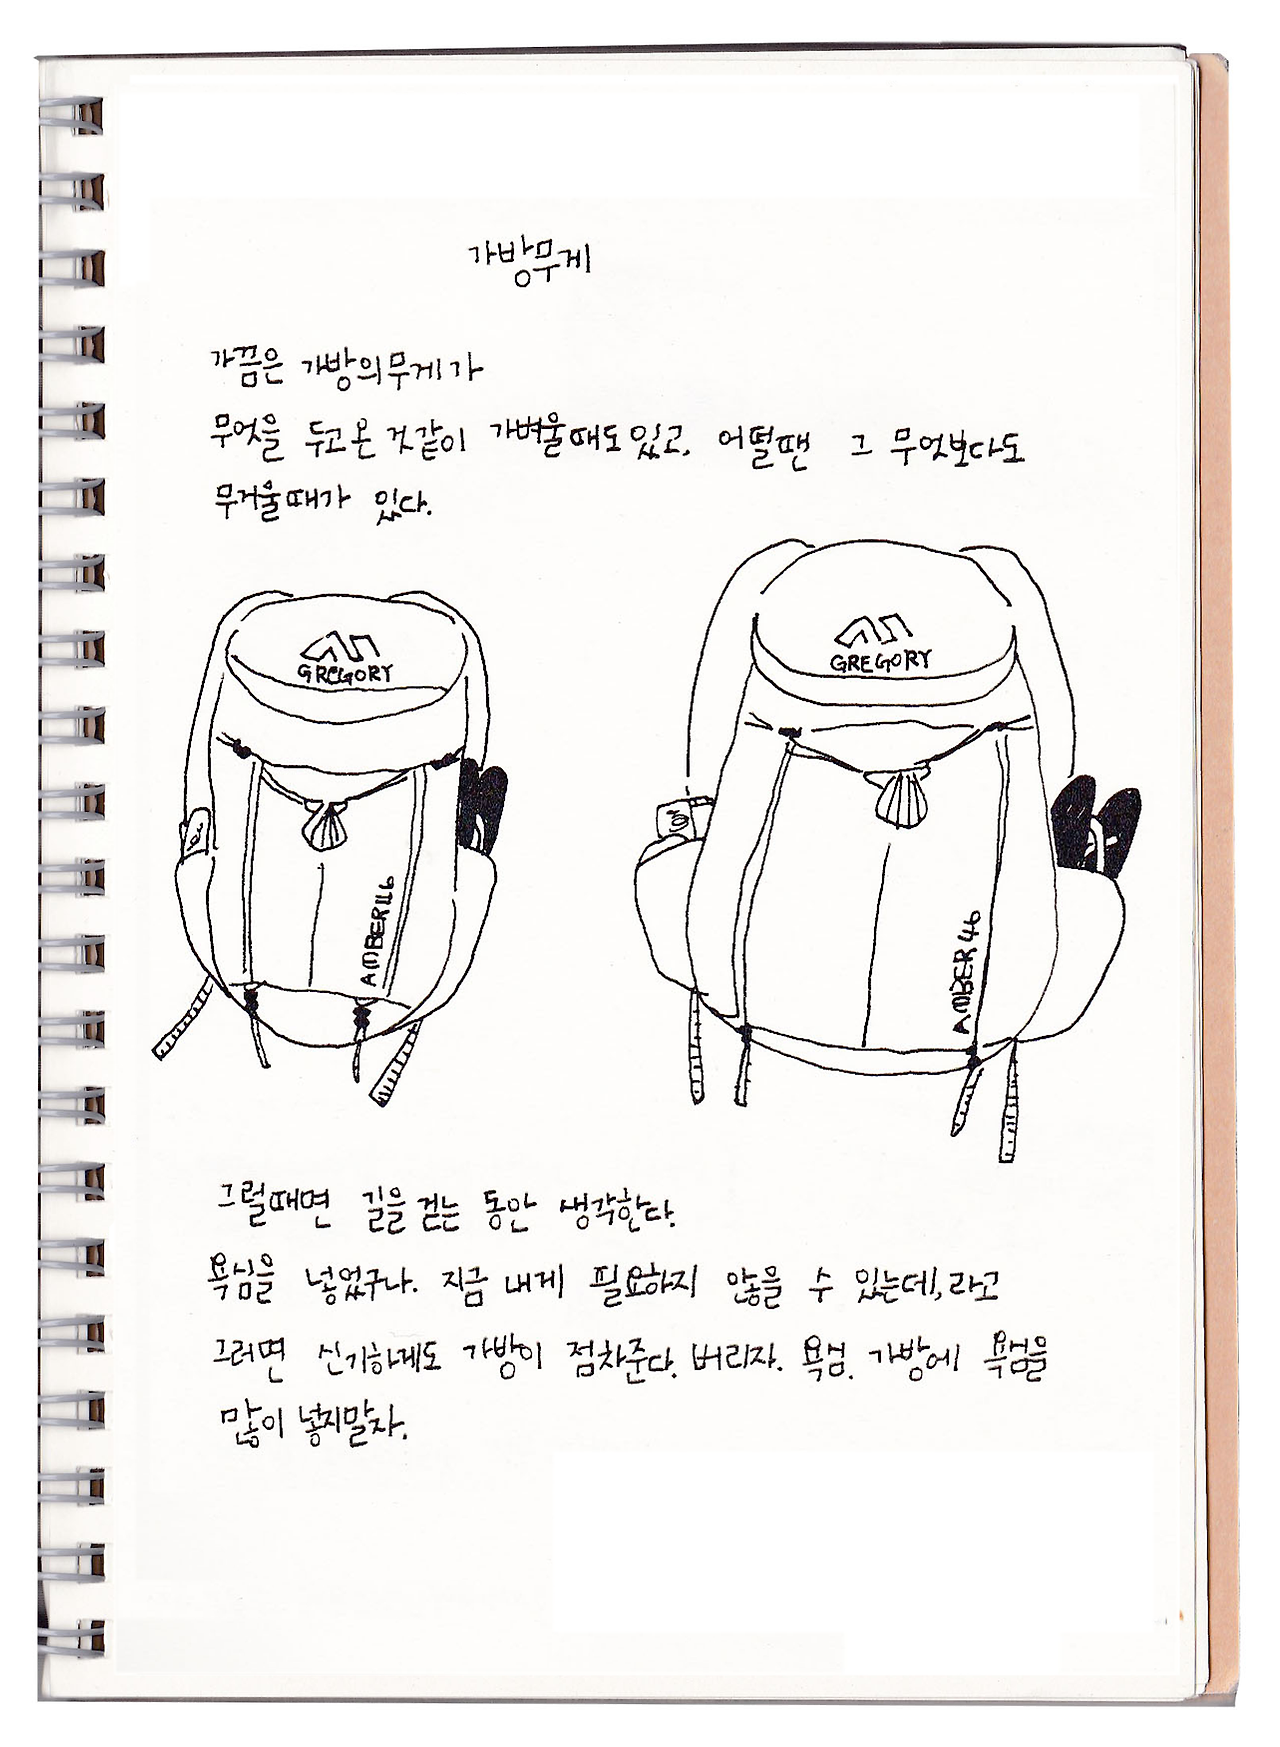 가방무게
가끔은 가방의무게가
무엇을 두고온 것같이 가벼울때도있고, 어떨땐 그 무엇보다도
무거울때가 있다.
GREGORY
GREGORY
AMBER 46
AMBER 46
그럴때면 길을 걷는 동안 생각한다.
욕심을 넣었구나. 지금 내게 필요하지 않을 수 있는데, 라고
그러면 신기하게도 가방이 점차준다. 버리자. 욕심. 가방에 욕심을
많이 넣지말자.